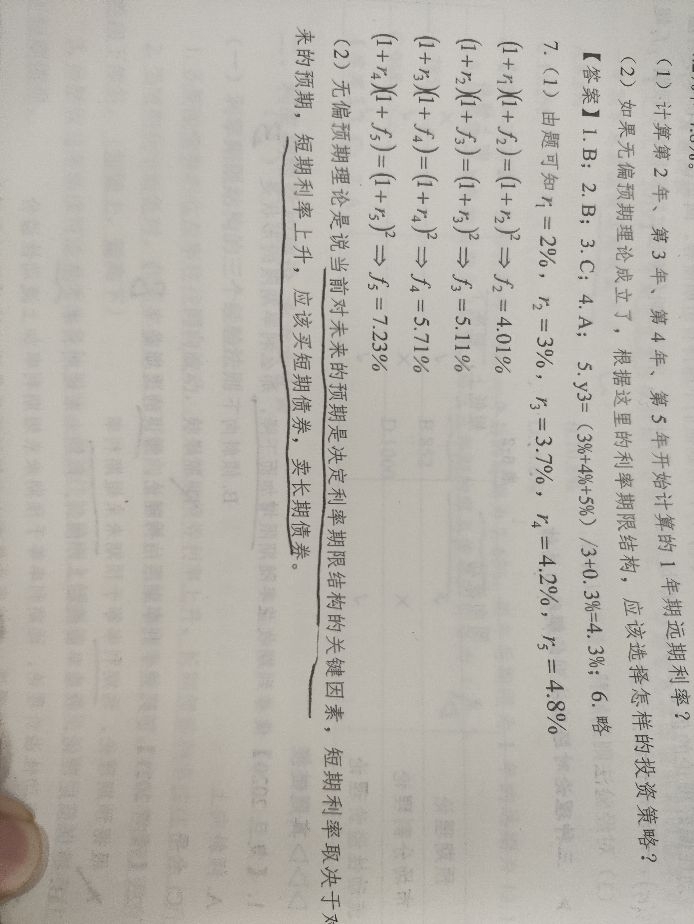 (1) 计算第 2 年、第 3 年、第 4 年、第 5 年开始计算的 1 年期远期利率？
(2) 如果无偏预期理论成立了，根据这里的利率期限结构，应该选择怎样的投资策略？
【答案】1. B； 2. B； 3. C； 4. A； 5. y3=（3%+4%+5%）/3+0. 3%=4. 3%； 6. 略
7.（1）由题可知 r₁ = 2%，r₂ = 3%，r₃ = 3.7%，r₄ = 4.2%，r₅ = 4.8%
(1+r₁)(1+f₂)=(1+r₂)² ⇒ f₂ = 4.01%
(1+r₂)(1+f₃)=(1+r₃)² ⇒ f₃ = 5.11%
(1+r₃)(1+f₄)=(1+r₄)² ⇒ f₄ = 5.71%
(1+r₄)(1+f₅)=(1+r₅)² ⇒ f₅ = 7.23%
（2）无偏预期理论是说当前对未来的预期是决定利率期限结构的关键因素，短期利率取决于对
来的预期，短期利率上升，应该买短期债券，卖长期债券。